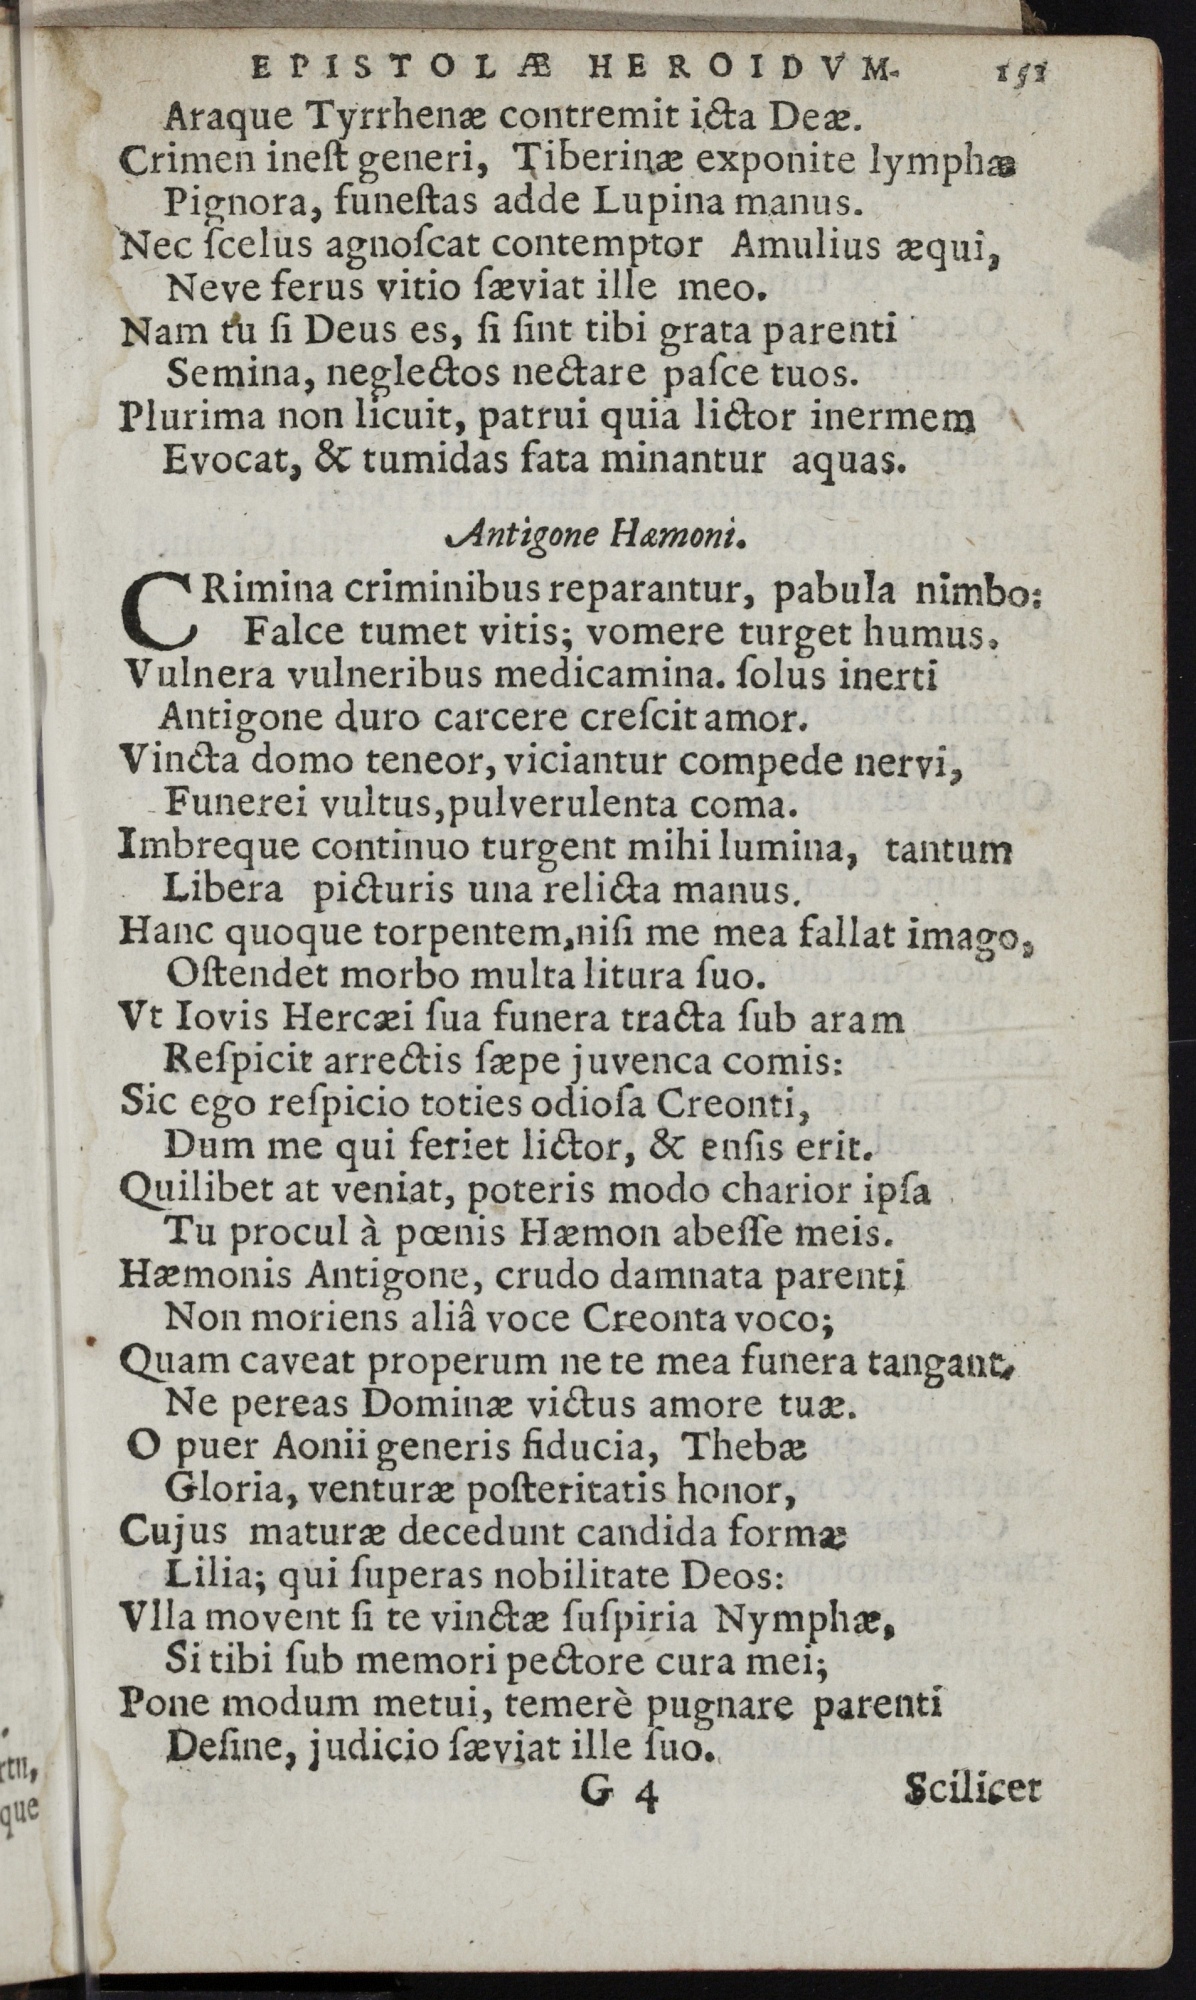 EPISTOLÆ HEROIDVM. 151
Araque Tyrrhenæ contremit icta Deæ.
Crimen ineſt generi, Tiberinæ exponite lymphæ
Pignora, funeſtas adde Lupina manus.
Nec ſcelus agnoſcat contemptor Amulius æqui,
Neve ferus vitio ſæviat ille meo.
Nam tu ſi Deus es, ſi ſint tibi grata parenti
Semina, neglectos nectare paſce tuos.
Plurima non licuit, patrui quia lictor inermem
Evocat, & tumidas fata minantur aquas.
Antigone Hæmoni.
CRimina criminibus reparantur, pabula nimbo:
Falce tumet vitis; vomere turget humus.
Vulnera vulneribus medicamina. ſolus inerti
Antigone duro carcere creſcit amor.
Vincta domo teneor, viciantur compede nervi,
Funerei vultus, pulverulenta coma.
Imbreque continuo turgent mihi lumina, tantum
Libera picturis una relicta manus.
Hanc quoque torpentem, niſi me mea fallat imago,
Oſtendet morbo multa litura ſuo.
Vt Iovis Hercæi ſua funera tracta ſub aram
Reſpicit arrectis ſæpe juvenca comis:
Sic ego reſpicio toties odioſa Creonti,
Dum me qui feriet lictor, & enſis erit.
Quilibet at veniat, poteris modo charior ipſa
Tu procul à pœnis Hæmon abeſſe meis.
Hæmonis Antigone, crudo damnata parenti
Non moriens aliâ voce Creonta voco;
Quam caveat properum ne te mea funera tangant,
Ne pereas Dominæ victus amore tuæ.
O puer Aonii generis fiducia, Thebæ
Gloria, venturæ poſteritatis honor,
Cujus maturæ decedunt candida formæ
Lilia; qui ſuperas nobilitate Deos:
Vlla movent ſi te vinctæ ſuſpiria Nymphæ,
Si tibi ſub memori pectore cura mei;
Pone modum metui, temerè pugnare parenti
Deſine, judicio ſæviat ille ſuo.
G 4 Scilicet